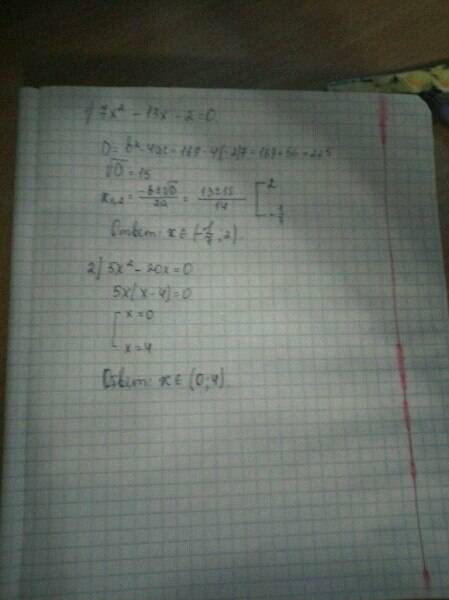 1) 7x² - 13x - 2 = 0
D = b² - 4ac = 169 - 4(-2)7 = 169 + 56 = 225
√D = 15
x₁,₂ = (-b ± √D)/2a = (13 ± 15)/14 [ 2
-1/7
Ответ: x ∈ {-1/7, 2}.
2) 5x² - 20x = 0
5x(x - 4) = 0
[ x = 0
x = 4
Ответ: x ∈ {0; 4}.